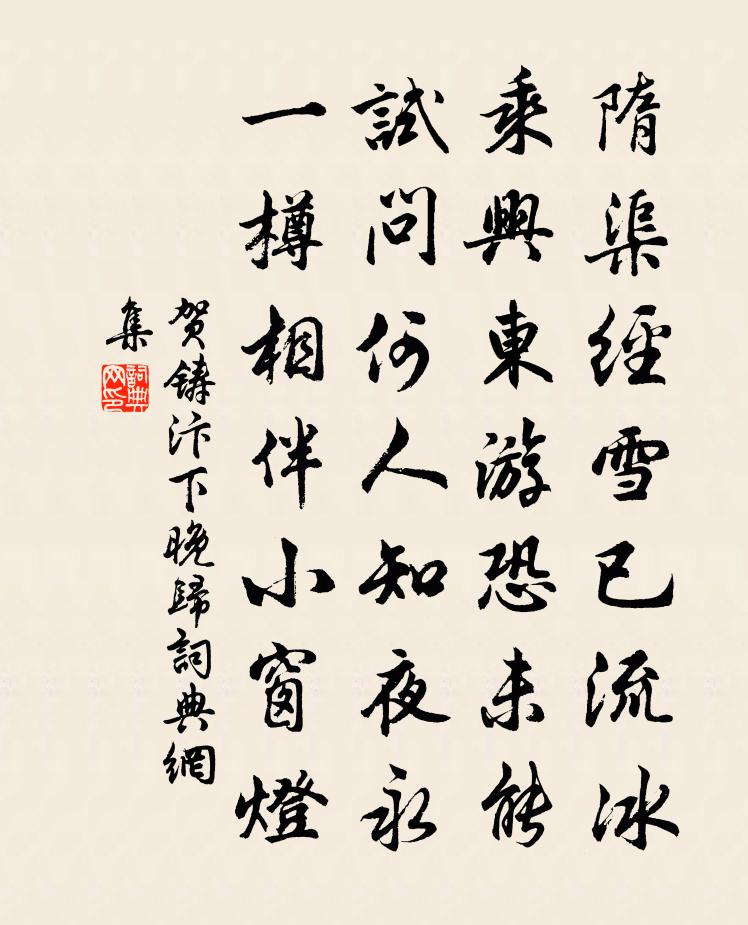 隋渠經雪已流冰
乘興東游恐未能
試問何人知夜永
一樽相伴小窗燈
贺鑄汴下晚歸詞典網
集
詞典
网印